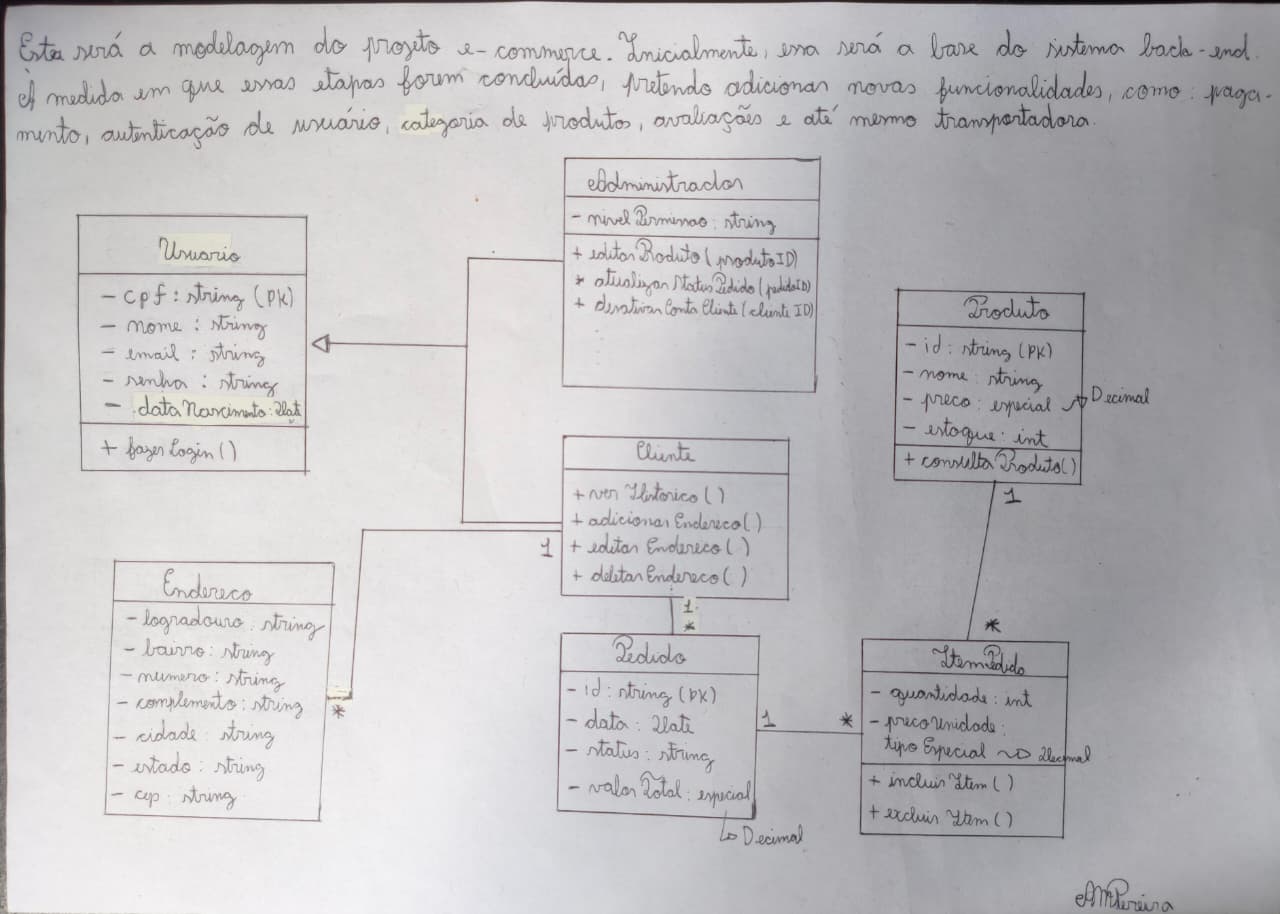 Esta será a modelagem do projeto e-commerce. Inicialmente, essa será a base do sistema back-end.
À medida em que essas etapas forem concluídas, pretendo adicionar novas funcionalidades, como: paga-
mento, autenticação de usuário, categoria de produtos, avaliações e até mesmo transportadora.
Administrador
- nivelPermissao: string
+ editarProduto(produtoID)
* atualizarStatusPedido(pedidoID)
+ desativarContaCliente(clienteID)
Usuario
- cpf: string (PK)
- nome: string
- email: string
- senha: string
- dataNascimento: Date
+ fazerLogin()
Produto
- id: string (PK)
- nome: string
- preco: especial → Decimal
- estoque: int
+ consultaProduto()
1
*
Cliente
+ verHistorico()
+ adicionarEndereco()
+ editarEndereco()
+ deletarEndereco()
1
1
*
Endereco
- logradouro: string
- bairro: string
- numero: string
- complemento: string
- cidade: string
- estado: string
- cep: string
*
Pedido
- id: string (PK)
- data: Date
- status: string
- valorTotal: especial
↳ Decimal
1
*
ItemPedido
- quantidade: int
- precoUnidade:
tipoEspecial → Decimal
+ incluirItem()
+ excluirItem()
AMPereira